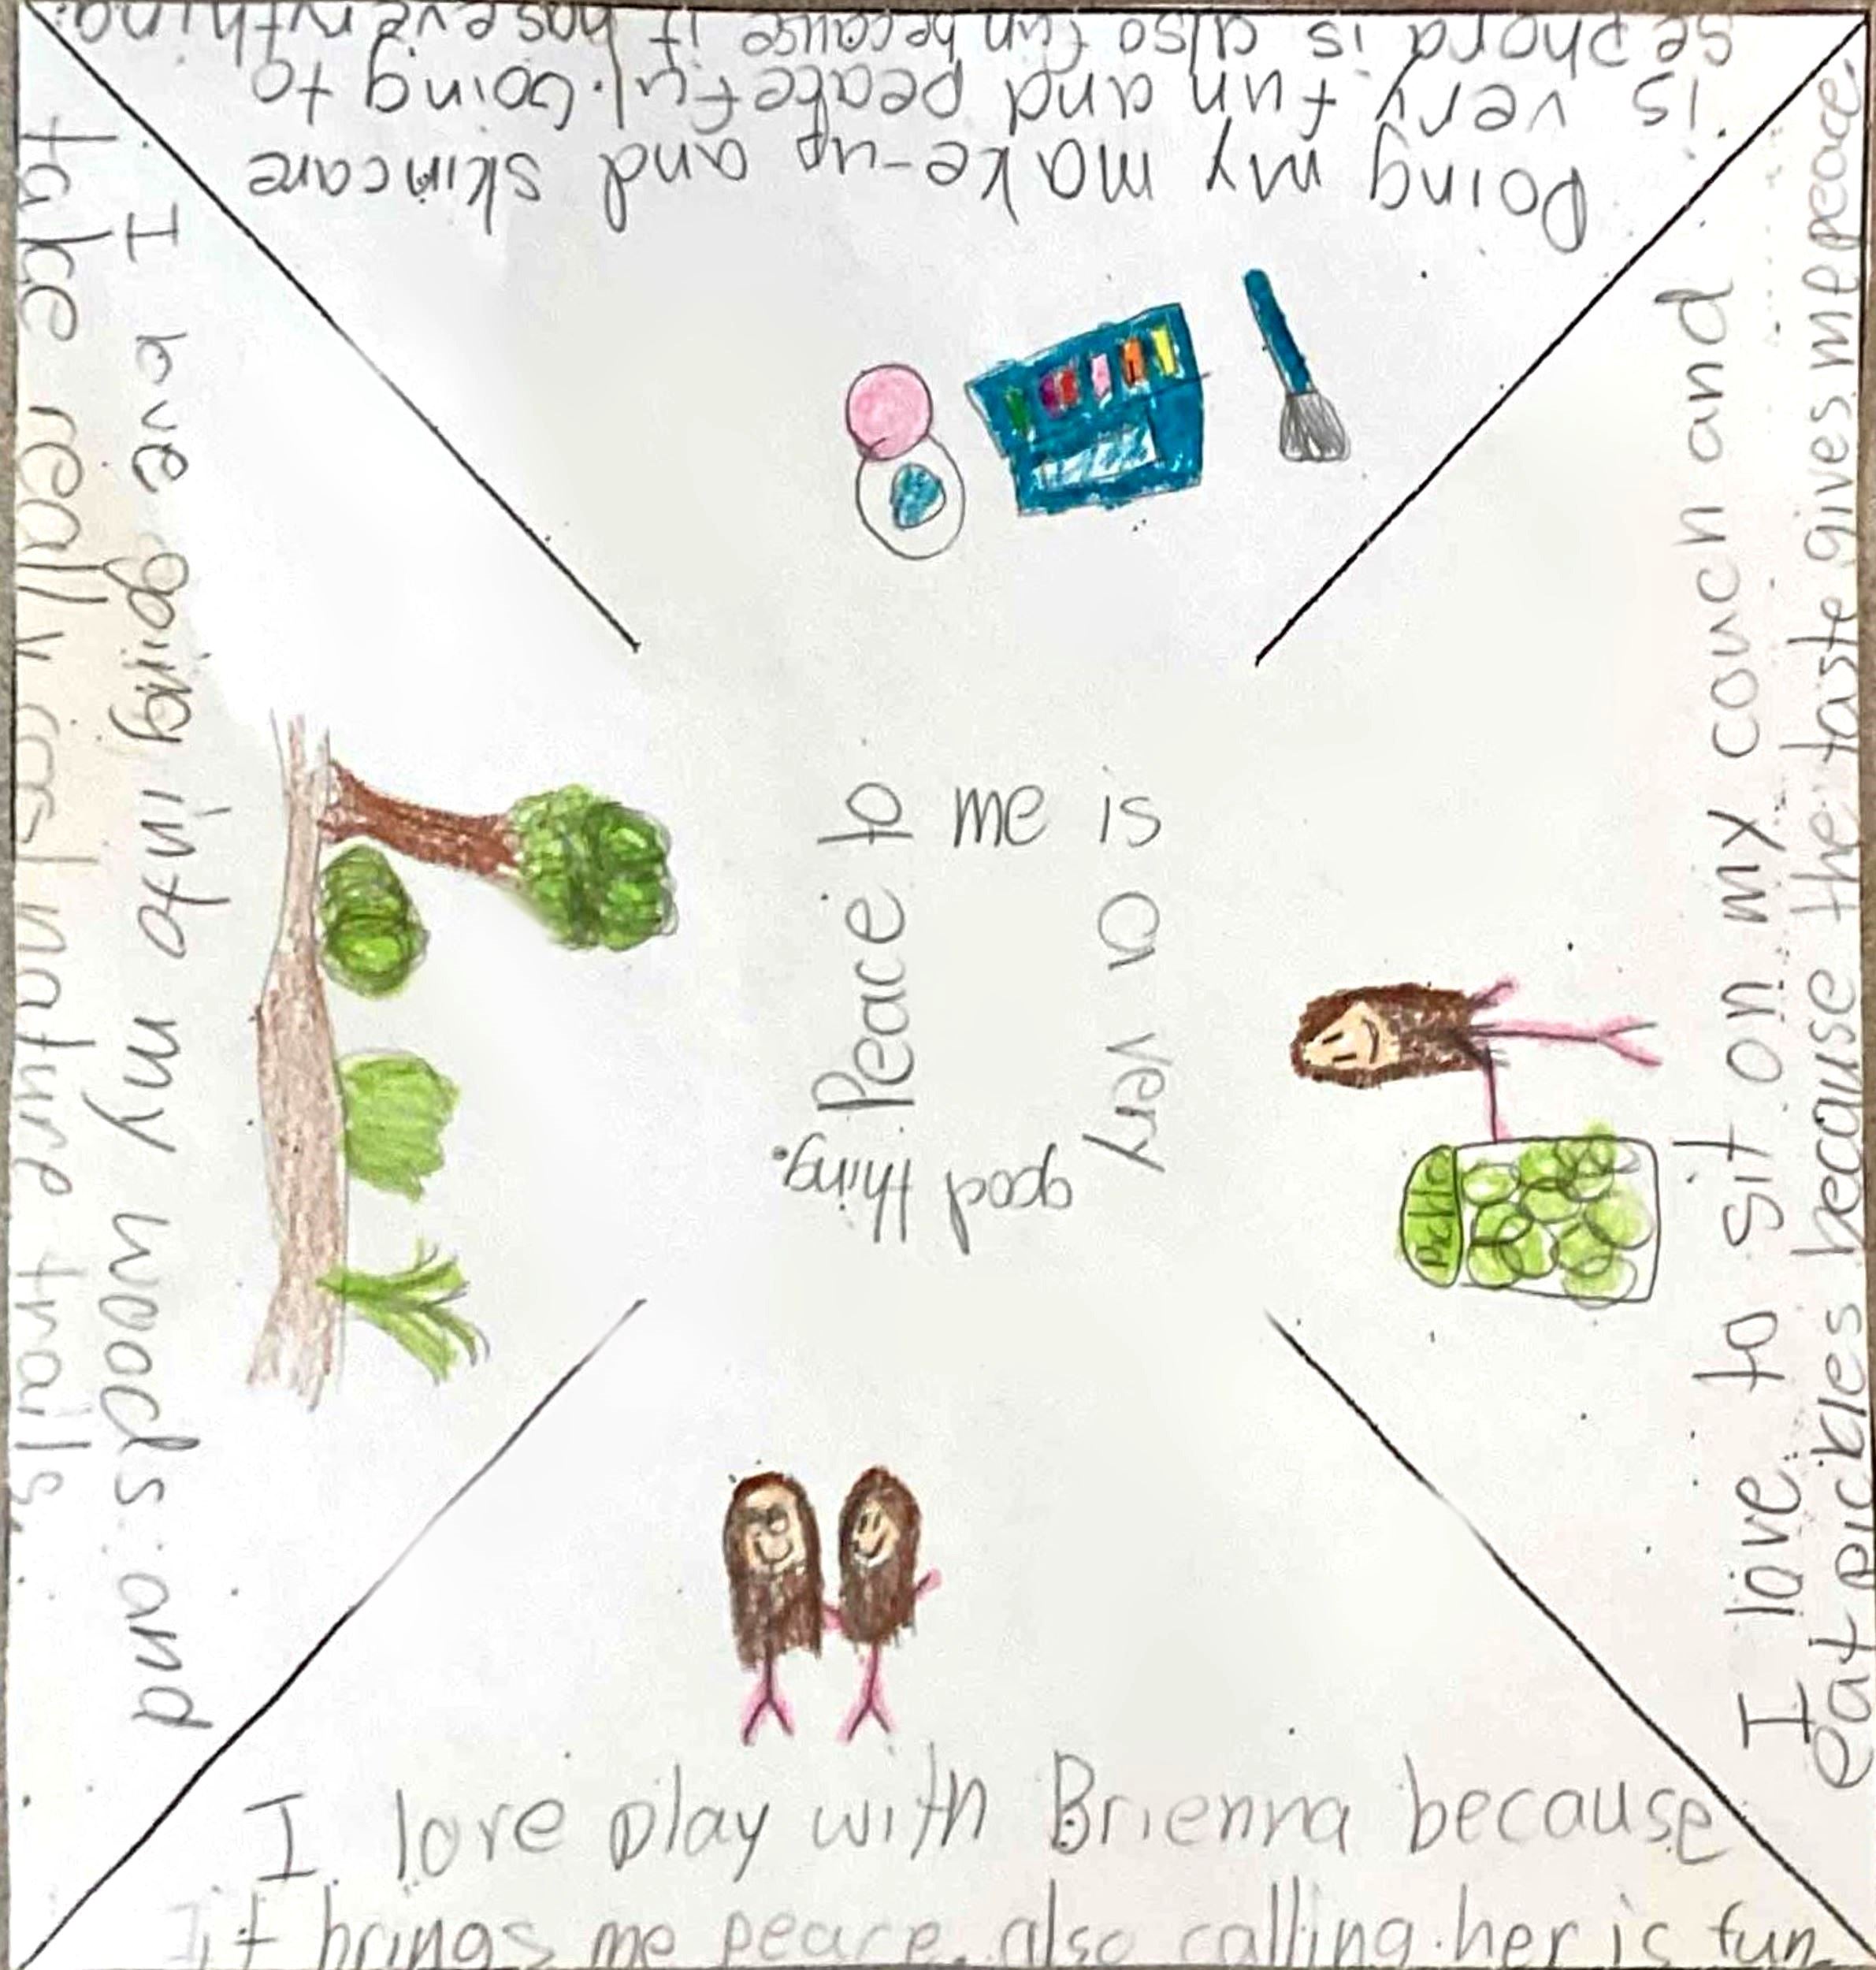 Doing my make-up and skincare
is very fun and peaceful. Going to
sephora is also fun because it has everything.
I going into my woods and
take really cool nature trails.
Peace to
me is
a very
good thing.
I love to sit on my couch and
eat pickles because the taste gives me peace.
Pickle
I love play with Brienna because
it brings me peace. also calling her is fun.